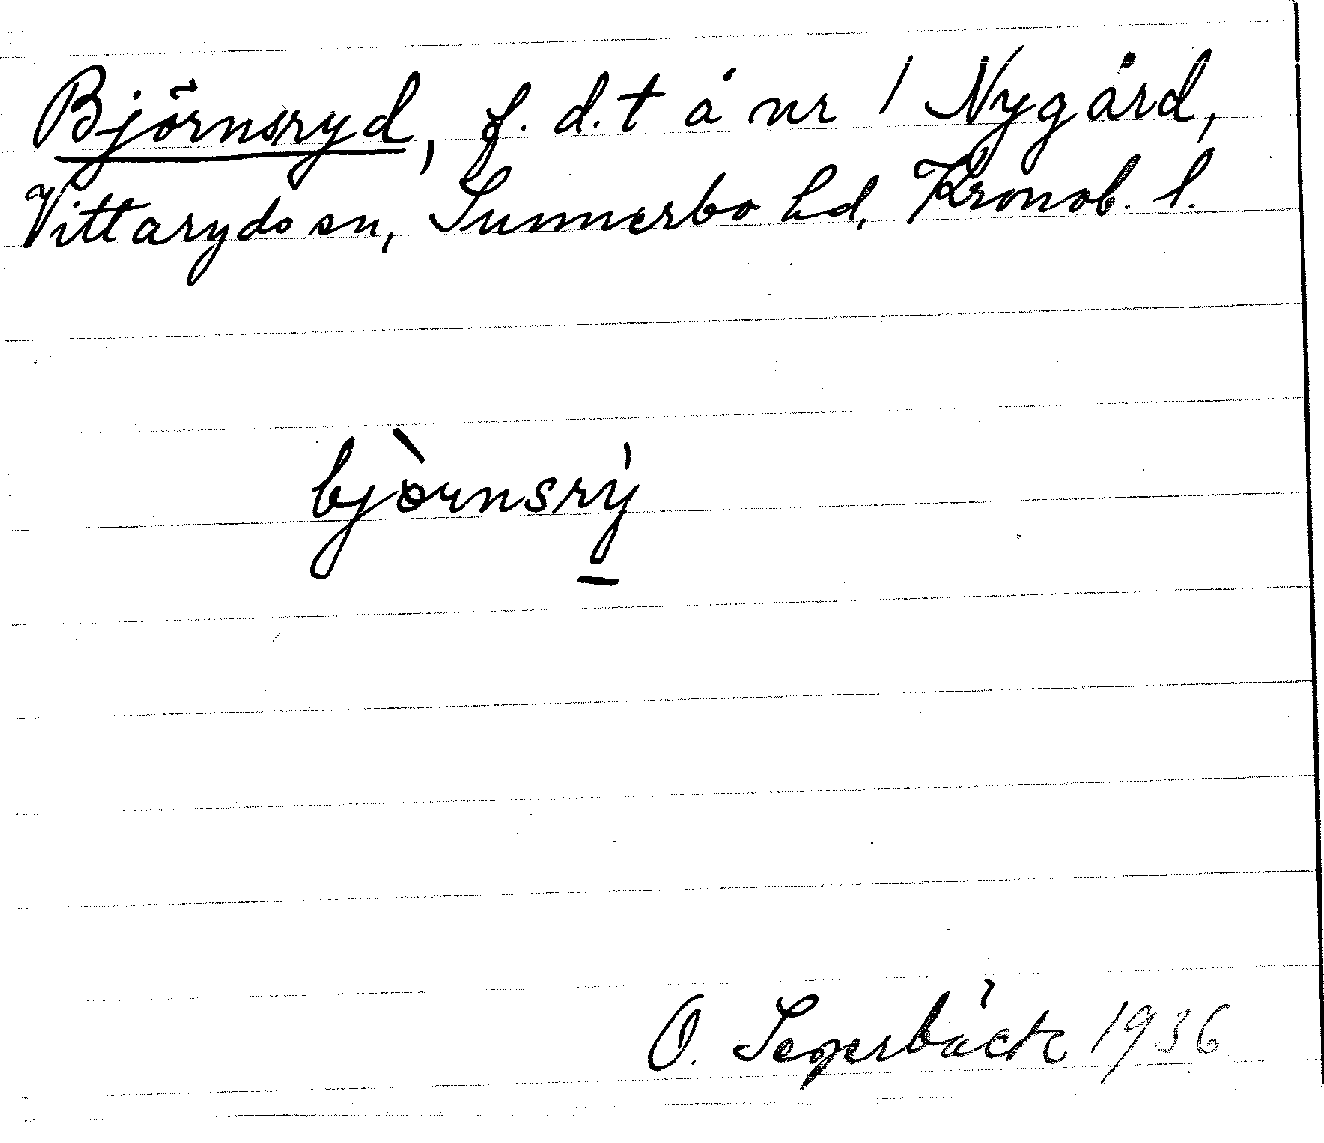 Björnsryd, f. d. t å nr 1 Nygård,
Vittaryds sn, Sunnerbo hd, Kronob. l.
bjòrnsrý
O. Segerbäck 1936